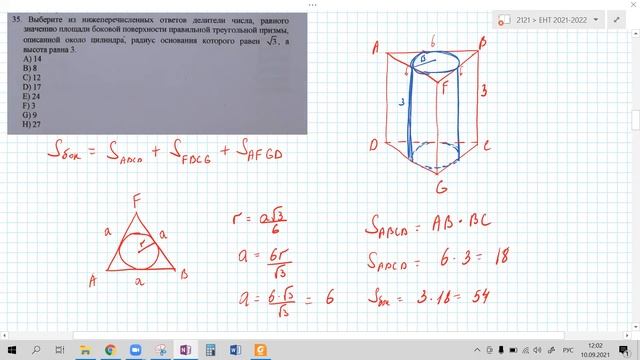 2121 > ЕНТ 2021-2022
35. Выберите из нижеперечисленных ответов делители числа, равного
значению площади боковой поверхности правильной треугольной призмы,
описанной около цилиндра, радиус основания которого равен √3, а
высота равна 3.
A) 14
B) 8
C) 12
D) 17
E) 24
F) 3
G) 9
H) 27
Sбок = SABCD + SFBCG + SAFGD
A
6
B
√3
F
3
3
D
C
G
F
a
r
a
A
a
B
r = a√3/6
a = 6r/√3
a = 6·√3/√3 = 6
SABCD = AB · BC
SABCD = 6 · 3 = 18
Sбок = 3 · 18 = 54
РУС
12:02
10.09.2021